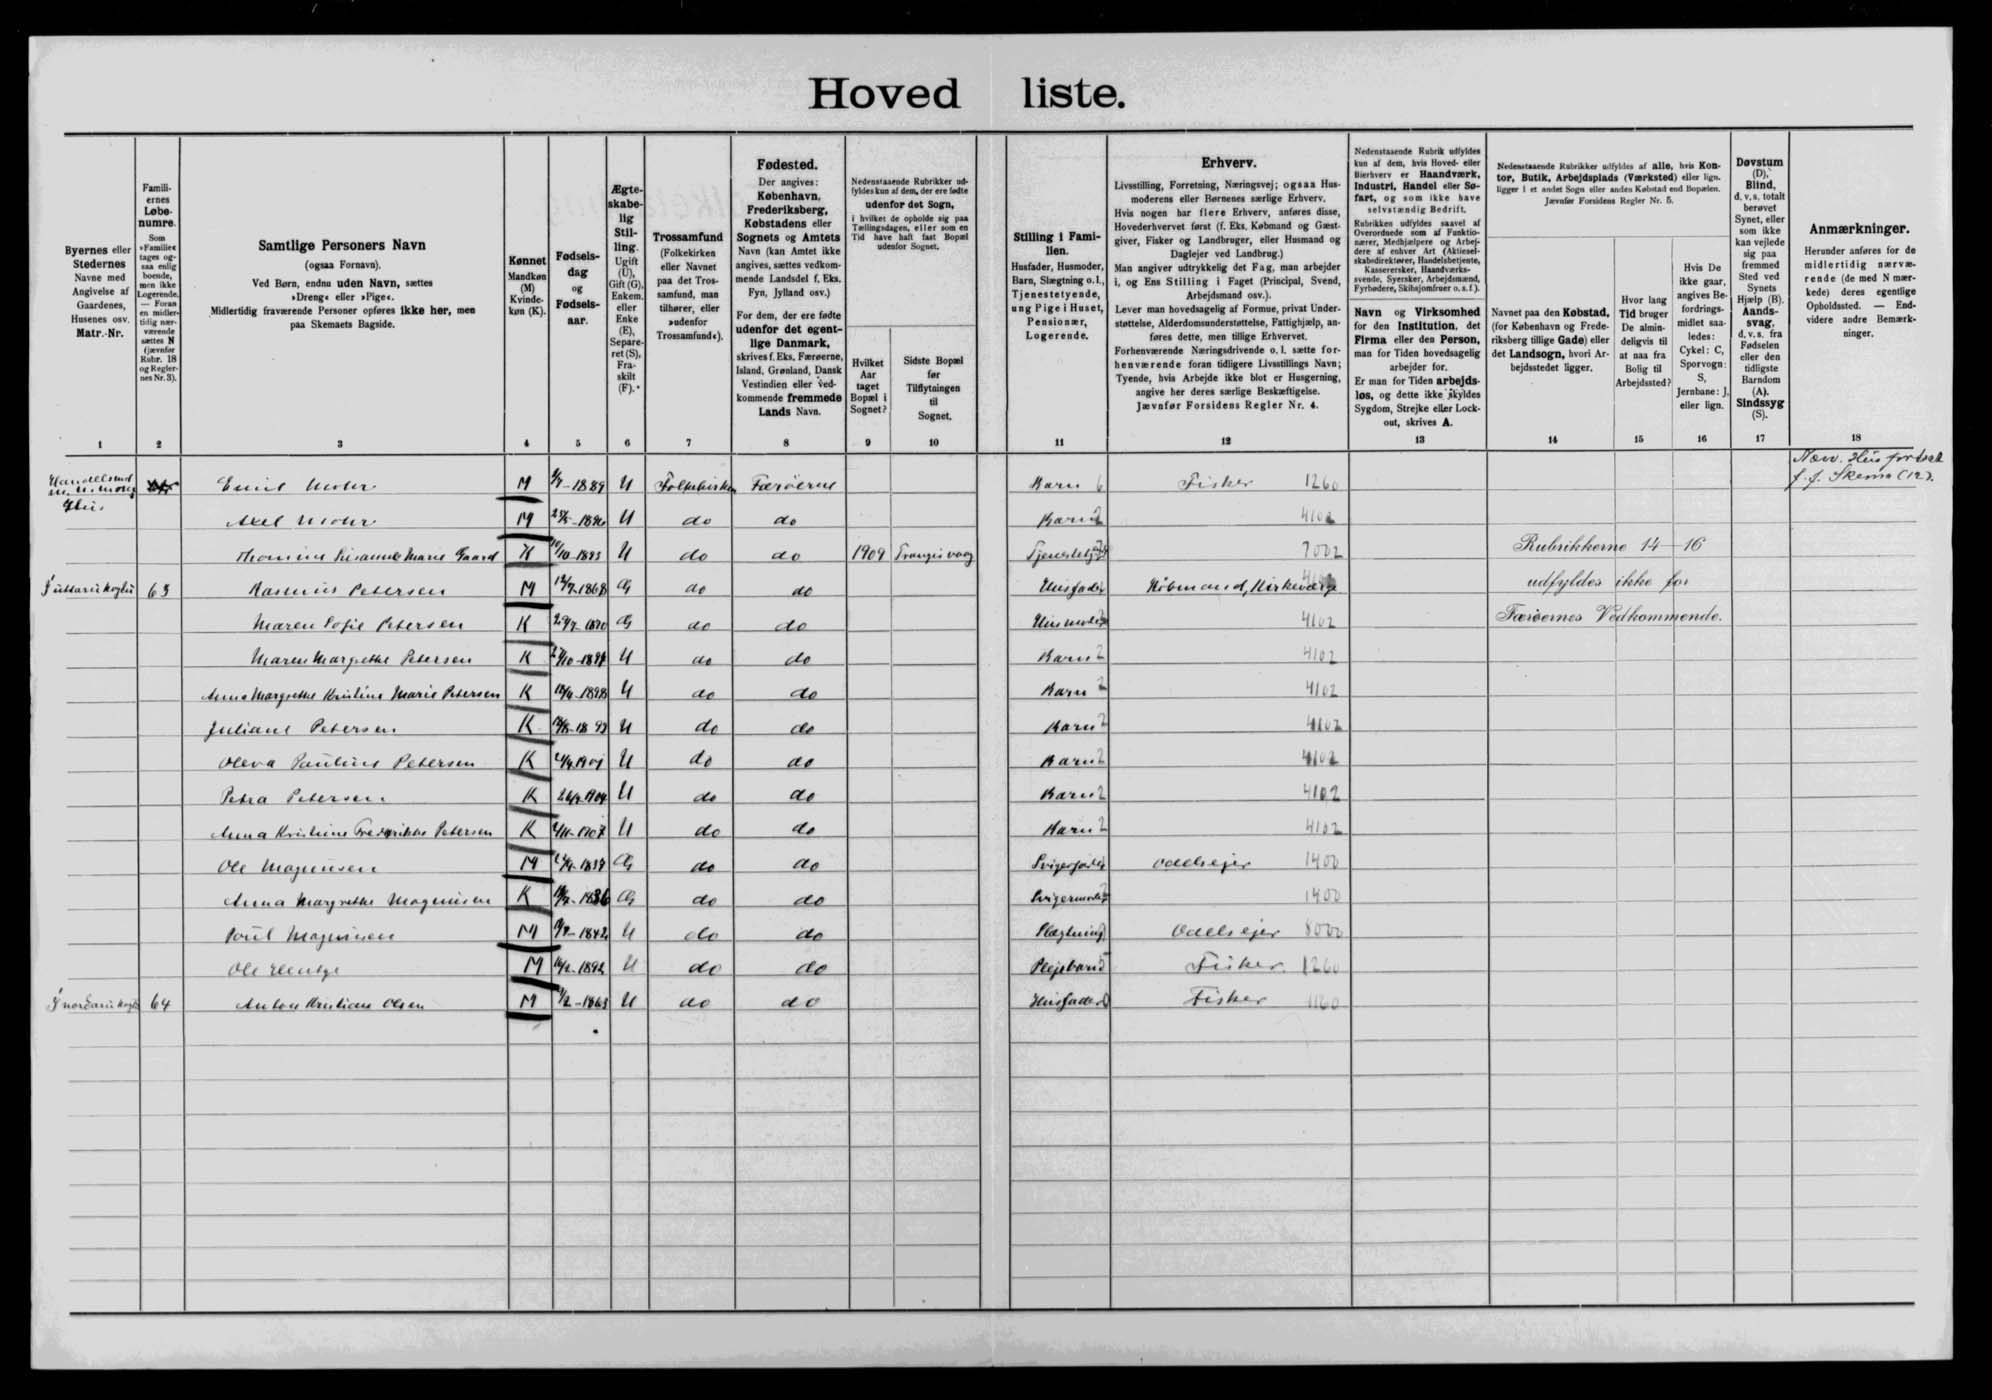 Hovedliste.
Byernes eller Stedernes Navne med Angivelse af Gaardenes, Husenes osv. Matr.-Nr.
Familiernes Løbenumre.
Som »Familie« tages ogsaa enlig boende, men ikke Logerende. — Foran en midlertidig nærværende sættes N (jævnfør Rubr. 18 og Regler-nes Nr. 3).
Samtlige Personers Navn
(ogsaa Fornavn).
Ved Børn, endnu uden Navn, sættes
»Dreng« eller »Pige«.
Midlertidig fraværende Personer opføres ikke her, men
paa Skemaets Bagside.
Kønnet
Mandkøn (M)
Kvindekøn (K).
Fødselsdag
og
Fødselsaar.
Ægteskabelig Stilling.
Ugift (U), Gift (G), Enkem. eller Enke (E), Separeret (S), Fraskilt (F).
Trossamfund
(Folkekirken eller Navnet paa det Trossamfund, man tilhører, eller »udenfor Trossamfund«).
Fødested.
Der angives:
København, Frederiksberg, Købstadens eller Sognets og Amtets Navn (kan Amtet ikke angives, sættes vedkommende Landsdel f. Eks. Fyn, Jylland osv.)
For dem, der ere fødte udenfor det egentlige Danmark, skrives f. Eks. Færøerne, Island, Grønland, Dansk Vestindien eller vedkommende fremmede Lands Navn.
Nedenstaaende Rubrikker udfyldes kun af dem, der ere fødte udenfor det Sogn, i hvilket de opholde sig paa Tællingsdagen, eller som en Tid have haft fast Bopæl udenfor Sognet.
Hvilket Aar taget Bopæl i Sognet?
Sidste Bopæl før Tilflytningen til Sognet.
Stilling i Familien.
Husfader, Husmoder, Barn, Slægtning o. l., Tjenestetyende, ung Pige i Huset, Pensionær, Logerende.
Erhverv.
Livsstilling, Forretning, Næringsvej; ogsaa Husmoderens eller Børnenes særlige Erhverv.
Hvis nogen har flere Erhverv, anføres disse, Hovederhvervet først (f. Eks. Købmand og Gæstgiver, Fisker og Landbruger, eller Husmand og Daglejer ved Landbrug.)
Man angiver udtrykkelig det Fag, man arbejder i, og Ens Stilling i Faget (Principal, Svend, Arbejdsmand osv.).
Lever man hovedsagelig af Formue, privat Understøttelse, Alderdomsunderstøttelse, Fattighjælp, anføres dette, men tillige Erhvervet.
Forhenværende Næringsdrivende o. l. sætte forhenværende foran tidligere Livsstillings Navn;
Tyende, hvis Arbejde ikke blot er Husgerning, angive her deres særlige Beskæftigelse.
Jævnfør Forsidens Regler Nr. 4.
Nedenstaaende Rubrik udfyldes kun af dem, hvis Hoved- eller Bierhverv er Haandværk, Industri, Handel eller Søfart, og som ikke have selvstændig Bedrift.
Rubrikken udfyldes saavel af Overordnede som af Funktionærer, Medhjælpere og Arbejdere af enhver Art (Aktieselskabsdirektører, Handelsbetjente, Kasserersker, Haandværkssvende, Syersker, Arbejdsmænd, Fyrbødere, Skibsjomfruer o. s. f.).
Navn og Virksomhed for den Institution, det Firma eller den Person, man for Tiden hovedsagelig arbejder for.
Er man for Tiden arbejdsløs, og dette ikke skyldes Sygdom, Strejke eller Lockout, skrives A.
Nedenstaaende Rubrikker udfyldes af alle, hvis Kontor, Butik, Arbejdsplads (Værksted) eller lign. ligger i et andet Sogn eller anden Købstad end Bopælen.
Jævnfør Forsidens Regler Nr. 5.
Navnet paa den Købstad, (for København og Frederiksberg tillige Gade) eller det Landsogn, hvori Arbejdsstedet ligger.
Hvor lang Tid bruger De almindeligvis til at naa fra Bolig til Arbejdssted?
Hvis De ikke gaar, angives Befordringsmidlet saaledes:
Cykel: C, Sporvogn: S, Jernbane: J, eller lign.
Døvstum (D), Blind, d. v. s. totalt berøvet Synet, eller som ikke kan vejlede sig paa fremmed Sted ved Synets Hjælp (B). Aandssvag, d. v. s. fra Fødselen eller den tidligste Barndom (A). Sindssyg (S).
Anmærkninger.
Herunder anføres for de midlertidig nærværende (de med N mærkede) deres egentlige Opholdssted. — Endvidere andre Bemærkninger.
1 2 3 4 5 6 7 8 9 10 11 12 13 14 15 16 17 18
Emil Mohr M 1889 U Folkekirken Færöerne Barn 6 Fisker 1260
Hus
Axel Mohr M U do do Barn 2 4102
Thomine Susanne Marie Gaard K 10/10-1893 U do do 1909 Trangisvaag 7002 Rubrikkerne 14—16
63 Rasmus Petersen M 12/7-1868 G do do Husfader Købmand, Kirkeværge udfyldes ikke for
Maren Sofie Petersen K G do do Husmoder 4102 Færøernes Vedkommende.
Maren Margrethe Petersen K U do do Barn 2 4102
Anna Margrethe Kristine Marie Petersen K U do do Barn 2 4102
Juliane Petersen K U do do Barn 2 4102
Oleva Pauline Petersen K U do do Barn 2 4102
Petra Petersen K U do do Barn 2 4102
Anna Kristine Fredrikke Petersen K U do do Barn 2 4102
Ole Magnusen M G do do Svigerfader Odelsejer 1400
Anna Margrethe Magnusen K G do do Svigermoder 1400
Poul Magnusen M 1842 U do do Slægtning Odelsejer 8000
Ole M 1892 U do do Plejebarn Fisker 1260
64 Anton Kristian Olsen M 1863 U do do Husfader Fisker 1160
f. f. Skema (12).